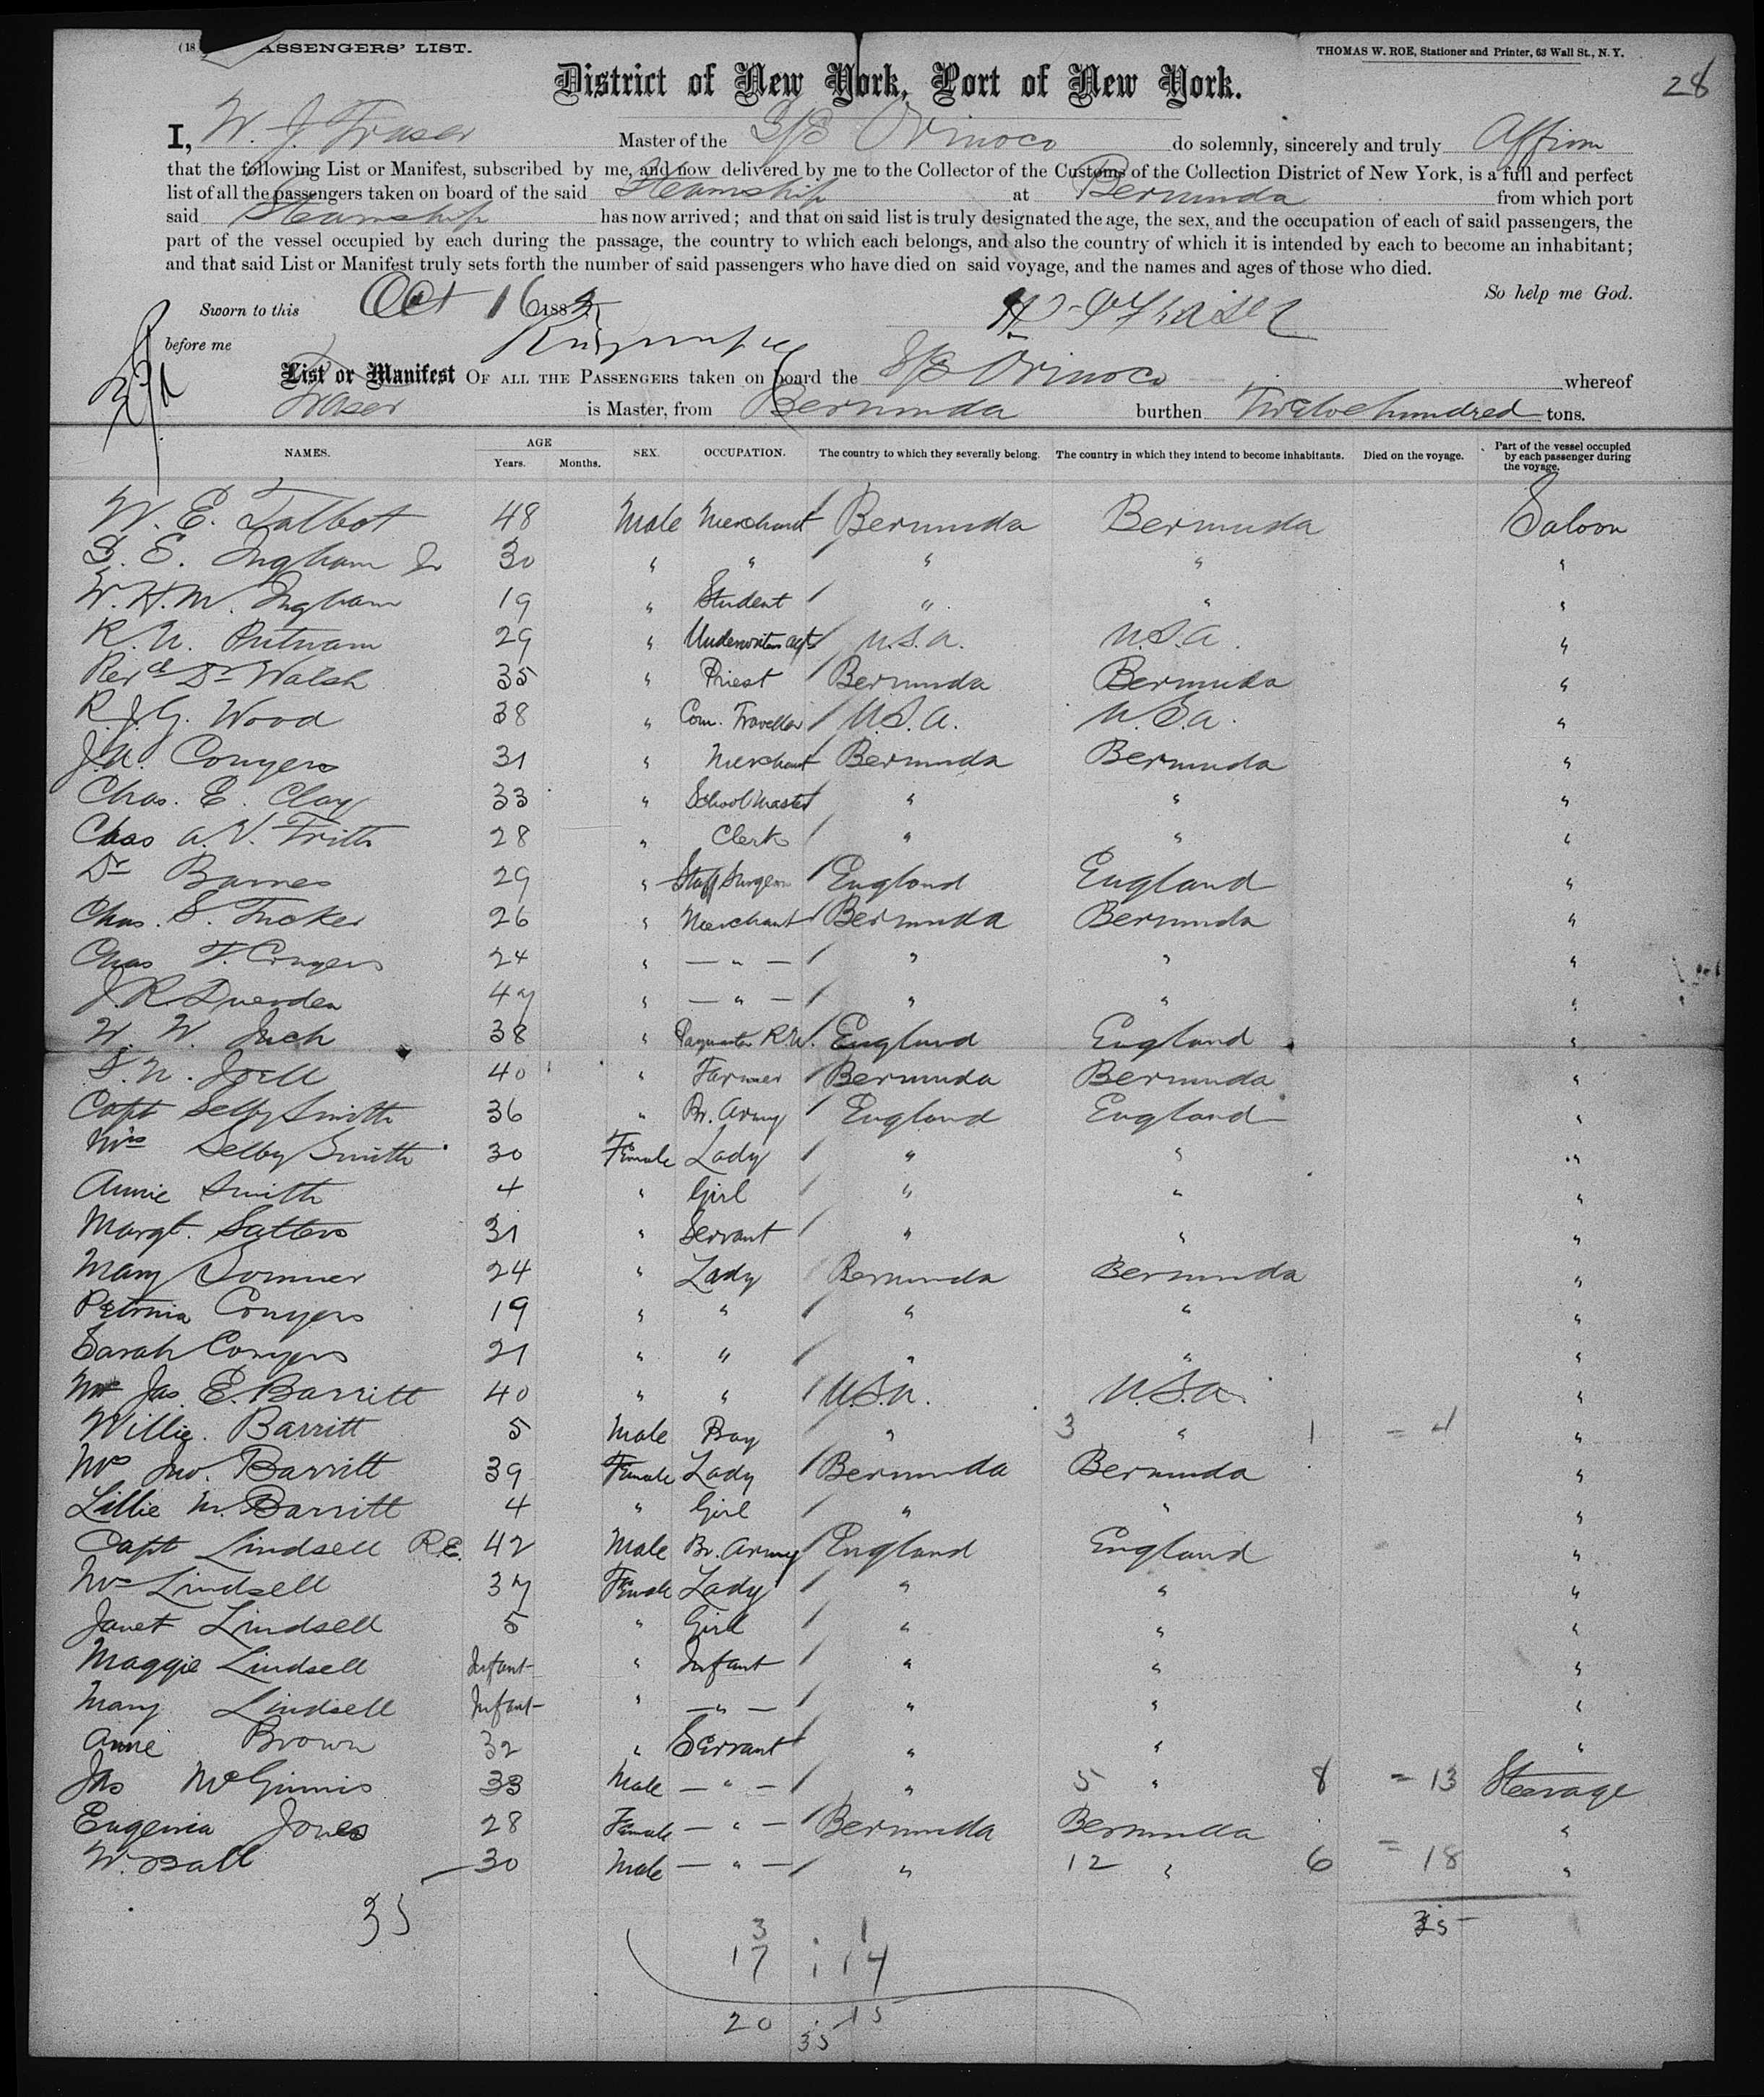 (18 ASSENGERS' LIST.
THOMAS W. ROE, Stationer and Printer, 63 Wall St., N. Y.
28
District of New York, Port of New York.
I, W. J. Fraser Master of the S/S Orinoco do solemnly, sincerely and truly Affirm
that the following List or Manifest, subscribed by me, and now delivered by me to the Collector of the Customs of the Collection District of New York, is a full and perfect
list of all the passengers taken on board of the said Steamship at Bermuda from which port
said Steamship has now arrived; and that on said list is truly designated the age, the sex, and the occupation of each of said passengers, the
part of the vessel occupied by each during the passage, the country to which each belongs, and also the country of which it is intended by each to become an inhabitant;
and that said List or Manifest truly sets forth the number of said passengers who have died on said voyage, and the names and ages of those who died.
So help me God.
Sworn to this Oct 16 188 W J Fraser
before me
List or Manifest OF ALL THE PASSENGERS taken on board the S/S Orinoco whereof
Fraser is Master, from Bermuda burthen Twelve hundred tons.
NAMES. AGE Years. Months. SEX. OCCUPATION. The country to which they severally belong. The country in which they intend to become inhabitants. Died on the voyage. Part of the vessel occupied by each passenger during the voyage.
W. E. Talbot 48 Male Merchant / Bermuda Bermuda Saloon
S. E. Ingham Jr 30 " " / " " "
W. H. M. Ingham 19 " Student / " " "
R. N. Putnam 29 " Underwriters agt / U.S.A. U.S.A. "
Revd Dr Walsh 35 " Priest / Bermuda Bermuda "
R. J. G. Wood 38 " Com. Traveller / U.S.A. U.S.A. "
J. A. Conyers 31 " Merchant / Bermuda Bermuda "
Chas. E. Clay 33 " School Master / " " "
Chas A. V. Frith 28 " Clerk / " " "
Dr Barnes 29 " Staff Surgeon / England England "
Chas. S. Tucker 26 " Merchant / Bermuda Bermuda "
Chas F. Conyers 24 " — " — / " " "
J. R. Duerden 47 " — " — / " " "
W. W. 38 " Paymaster R.N. / England England "
S. N. Joell 40 " Farmer / Bermuda Bermuda "
Capt Selby Smith 36 " Br. Army / England England "
Mrs Selby Smith 30 Female Lady / " " "
Annie Smith 4 " Girl / " " "
Margt. Satters 31 " Servant / " " "
Mary 24 " Lady / Bermuda Bermuda "
Petronia Conyers 19 " " / " " "
Sarah Conyers 21 " " / " " "
Mrs Jas. E. Barritt 40 " " / U.S.A. U.S.A. "
Willie. Barritt 5 Male Boy / " 3 " 1 = 4 "
Mrs Jno. Barritt 39 Female Lady / Bermuda Bermuda "
Lillie M. Barritt 4 " Girl / " " "
Capt Lindsell R.E. 42 Male Br. Army / England England "
Mrs Lindsell 37 Female Lady / " " "
Janet Lindsell 5 " Girl / " " "
Maggie Lindsell Infant " Infant / " " "
Mary Lindsell Infant " — " — / " " "
Annie Brown 32 " Servant / " " "
Jas McGinnis 33 Male — " — / " 5 " 8 = 13 Steerage
Eugenia Jones 28 Female — " — / Bermuda Bermuda "
W. Ball 30 Male — " — / " 12 " 6 = 18 "
35
35
3 1
17 14
20 15
35